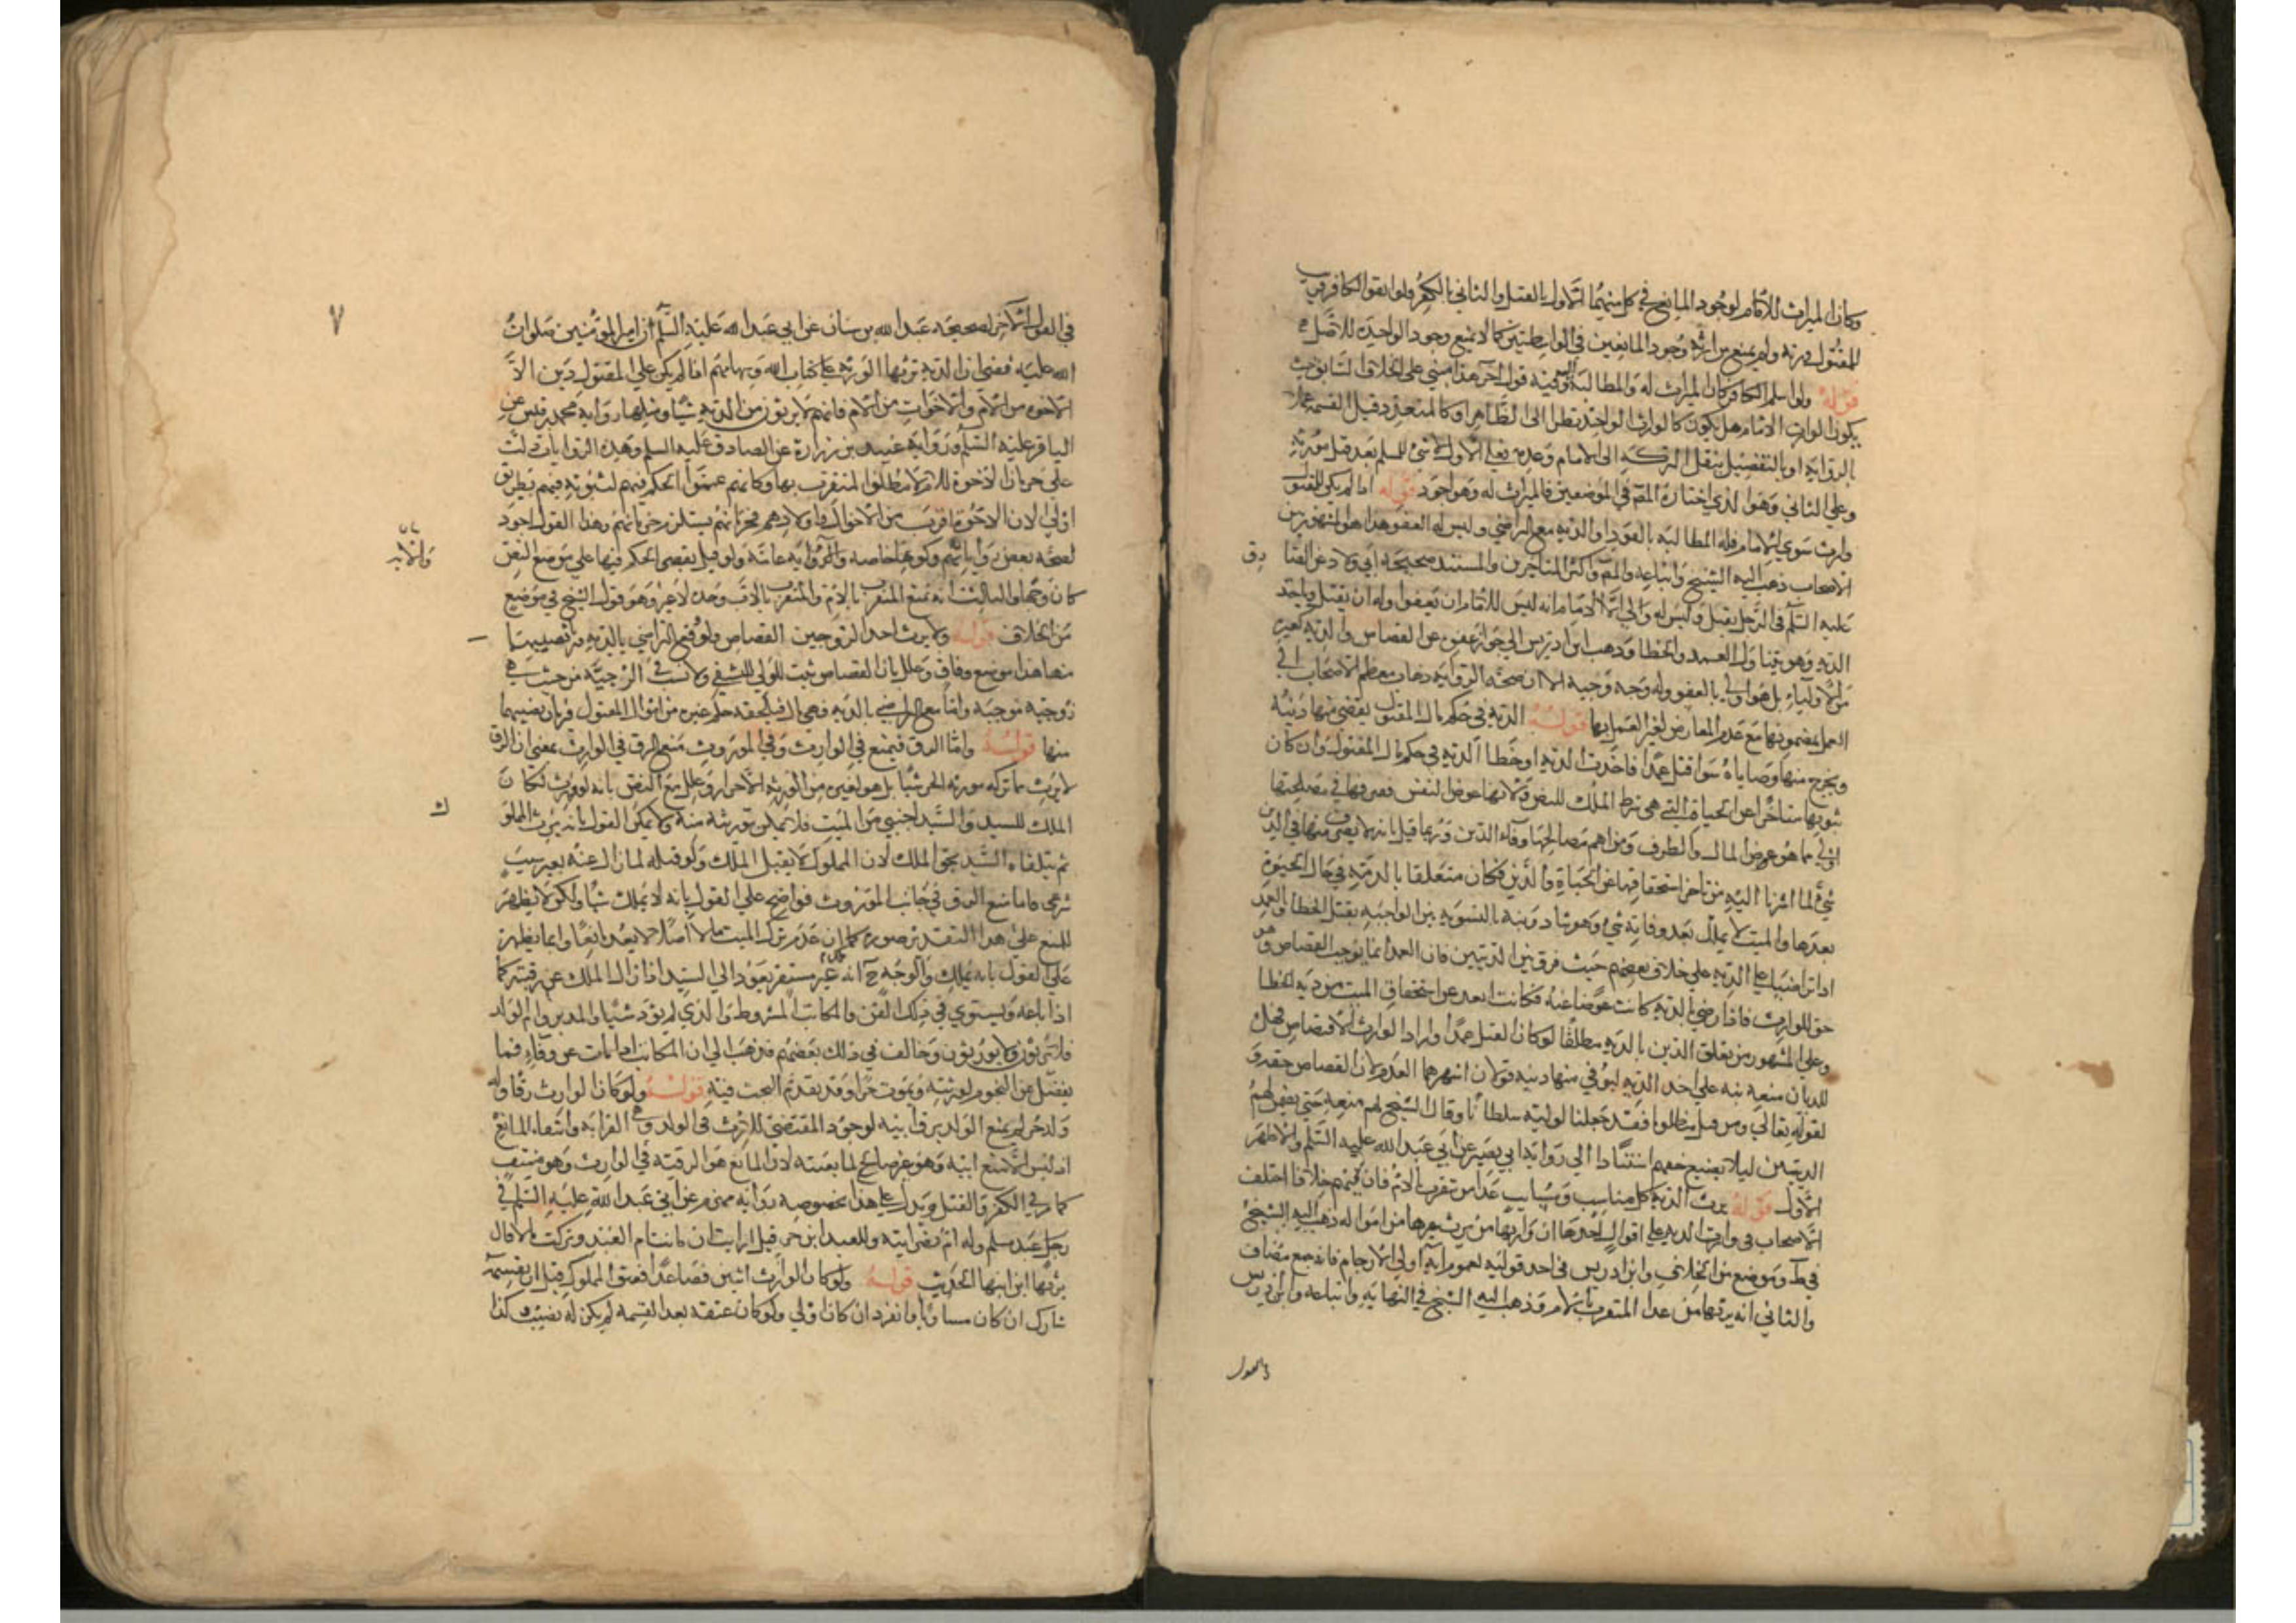 وكان الميراث للامام لوجود المانع في كل منهما الاول بالقتل والثاني بالكفر ولو انفق الكافر قريب
المقتول ورثه ولم يمنع من ارثه وجود المانعين في الواسطتين كما لا يمنع وجود الواحدة للاصل
قوله ولو اسلم الكافر كان الميراث له والمطالبة اليه وفيه قول اخر هذا مبني على الخلاف السابق حيث
يكون الوارث الامام هل يكون كالوارث الواحد نظرا الى الظاهر او كالمتعدد قبل القسمة عملا
بالرواية او بالتفصيل بنقل التركة الى الامام وعدمه فعلى الاول لا شئ للمسلم بعد قتل مورثه
وعلى الثاني وهو الذي اختاره المص في الموضعين فالميراث له وهو اجود قوله اذا لم يكن للمقتول
وارث سوى الامام فله المطالبة بالقود او الدية مع التراضي وليس له العفو هذا هو المشهور بين
الاصحاب ذهب اليه الشيخ واتباعه والمص واكثر المتاخرين والمستند صحيحة ابي ولاد عن الصادق
عليه السلم في الرجل يقتل وليس له ولي الا الامام انه ليس للامام ان يعفوا وله ان يقتل وياخذ
الدية وهو يتناول العمد والخطا وذهب ابن ادريس الى جواز عفوه عن القصاص والدية كغيره
من الاولياء بل هو اولى بالعفو وله وجه وجيه الا ان صحة الرواية وذهاب معظم الاصحاب الى
العمل بمضمونها مع عدم المعارض لغير العمل بها قوله الدية في حكم مال المقتول يقضى منها دينه
ويخرج منها وصاياه سوا قتل عمدا فاخذت الدية او خطا الدية في حكم مال المقتول وان كان
ثبوتها متاخرا عن الحياة التي هي شرط الملك للنص ولانها عوض النفس فصرفها في مصلحتها
اولى مما هو عوض المال والطرف ومن اهم مصالحها وفاء الدين وربما قيل بانه لا يصرف منها في الدين
شئ لما اشرنا اليه من تاخر استحقاقها عن الحياة والدين فكان متعلقا بالذمة في حال الحيوة
بعدها والميت لا يملك بعد وفاته شئ وهو شاذ ونبه بالتسويه بين الواجبة بقتل الخطا والعمد
اذا تراضيا على الدية على خلاف بعضهم حيث فرق بين الديتين فان العمد انما يوجب القصاص وهو
حق للوارث فاذا رضي بالدية كانت عوضا عنه فكانت ابعد عن استحقاق الميت من دية الخطا
وعلى المشهور من تعلق الدين بالدية مطلقا لو كان القتل عمدا واراد الوارث الاقتصاص فهل
للديان منعه منه على اخذ الدية ليوفي منها دينه قولان اشهرهما العدم لان القصاص حقه
لقوله تعالى ومن قتل مظلوما فقد جعلنا لوليه سلطانا وقال الشيخ لهم منعه حتى يضمن لهم
الدين ليلا يضيع حقهم استنادا الى رواية ابي بصير عن ابي عبد الله عليه السلم والاظهر
الاول قوله يرث الدية كل مناسب ومسابب عدا من تقرب بالام فان فيهم خلافا اختلف
الاصحاب في وارث الدية على اقوال احدها ان وارثها من يرث غيرها من امواله ذهب اليه الشيخ
في ط وموضع من الخلاف وابن ادريس في احد قوليه لعموم آية اولى الارحام فانه جمع مضاف
والثاني انه يرثها من عدا المتقرب بالام وذهب اليه الشيخ في النهاية واتباعه وابن ادريس
في القول الاخر لصحيحة عبد الله بن سنان عن ابي عبد الله عليه السلم ان امير المؤمنين صلوات
الله عليه قضى ان الدية ترثها الورثة على كتاب الله وسهامهم اذا لم يكن على المقتول دين الا
الاخوة من الام والاخوات من الام فانهم لا يرثون من الدية شيا ومثلها رواية محمد بن قيس عن
الباقر عليه السلم ورواية عبيد بن زرارة عن الصادق عليه السلم وهذه الروايات دلت
على حرمان الاخوة للام لا مطلق المتقرب بها وكانهم عمموا الحكم فيهم لثبوته فيهم بطريق
اولى لان الاخوة اقرب من الاخوال واولادهم فحرمانهم يستلزم حرمانهم وهذا القول اجود
لصحة بعض رواياتهم وكونها خاصة والاخر رواية عامة ولو قيل بقصر الحكم فيها على موضع النص
كان وجها والثالث انه يمنع المتقرب بالام والمتقرب بالاب وحده لا غير وهو قول الشيخ في موضع
من الخلاف قوله ولا يرث احد الزوجين القصاص ولو وقع التراضي بالدية ورثا نصيبهما
منها هذا موضع وفاق وعلل بان القصاص يثبت للولي للتشفي ولا نسب في الزوجية من حيث هي
زوجية موجبة واما مع التراضي بالدية فهي مال فيلحقه حكم غيره من اموال المقتول فيرثان نصيبهما
منها قوله واما الرق فيمنع في الوارث وفي الموروث منع الرق في الوارث بمعنى ان الرق
لا يرث مما تركه مورثه الحر شيا بل هو لغيره من الورثة الاحرار وعلل مع النص بانه لو ورث لكان
الملك للسيد والسيد اجنبي من الميت فلا يمكن توريثه منه ولا يمكن القول بانه يرث المملوك
ثم يتلقاه السيد بحق الملك لان المملوك لا يقبل الملك ولو قبله لما زال عنه بغير سبب
شرعي واما منع الرق في جانب الموروث فواضح على القول بانه لا يملك شيا ولكن لا يظهر
للمنع على هذا التقدير صورة كما ان عدم ترك الميت مالا اصلا لا يعد مانعا وانما يظهر
على القول بانه يملك والوجه ح انه ملك غير مستقر يعود الى السيد اذا زال الملك عن رقبته كما
اذا باعه ويستوي في ذلك القن والمكاتب المشروط والذي لم يؤد شيا والمدبر وام الولد
فلا يرثون ولا يورثون وخالف في ذلك بعضهم فذهب الى ان المكاتب اذا مات عن وفاء فما
يفضل عن النجوم لورثته ويموت حرا وقد تقدم البحث فيه قوله ولو كان الوارث رقا وله
ولد حر لم يمنع الولد برق ابيه لوجود المقتضي للارث في الولد وهو القرابة وانتفاء المانع
اذ ليس الا منع ابيه وهو غير صالح لمانعيته لان المانع هو الرقية في الوارث وهو منتف
كما مر في الكفر والقتل ويدل على هذا بخصوصه رواية مهزم عن ابي عبد الله عليه السلم في
رجل عبد مسلم وله ام نصرانية وللعبد ابن حر قيل ارايت ان ماتت ام العبد وتركت مالا قال
يرثها ابن ابنها الحديث قوله ولو كان الوارث اثنين فصاعدا فعتق المملوك قبل القسمة
شارك ان كان مساويا وانفرد ان كان اولى ولو كان عتقه بعد القسمة لم يكن له نصيب كذا
٧
ك